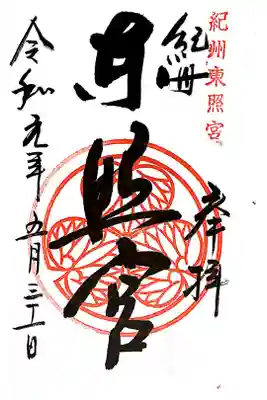 紀州東照宮
奉拝
紀州
東照宮
令和元年五月三十一日